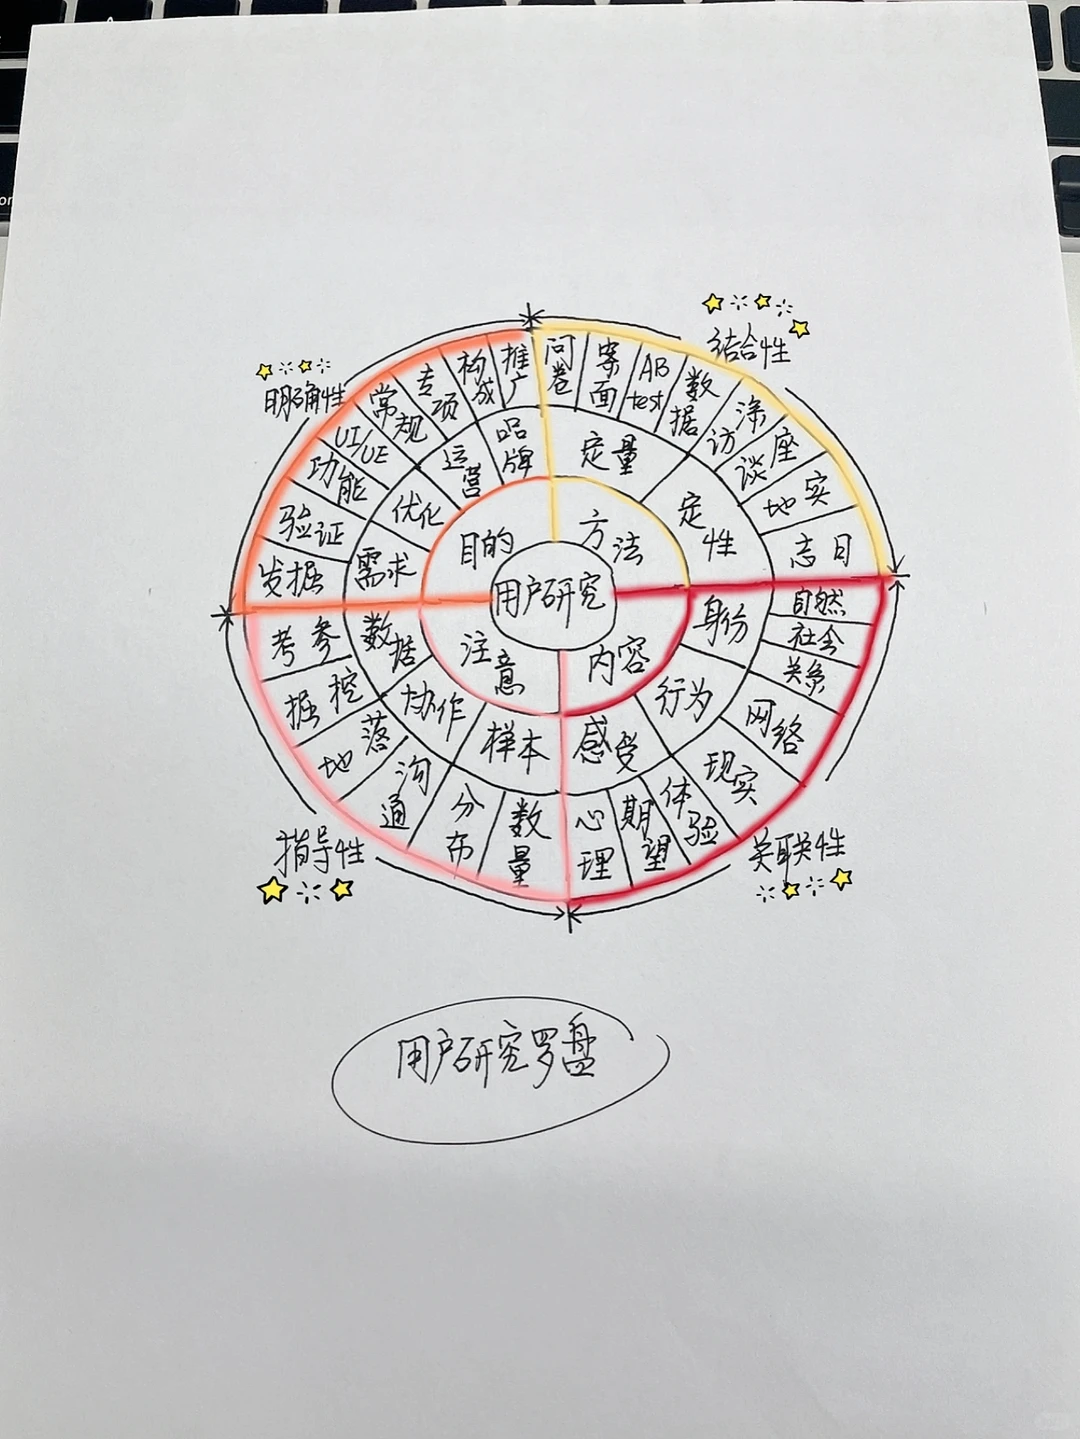 结合性
明确性
推广
构成
专项
常规
UI/UE
功能
验证
发掘
问卷
案面
AB test
数据
深访
座谈
实地
日志
品牌
运营
优化
需求
定量
定性
目的
方法
用户研究
注意
内容
数据
协作
样本
身份
行为
感受
参考
挖掘
落地
沟通
分布
数量
自然
社会
关系
网络
现实
体验
期望
心理
指导性
关联性
用户研究罗盘